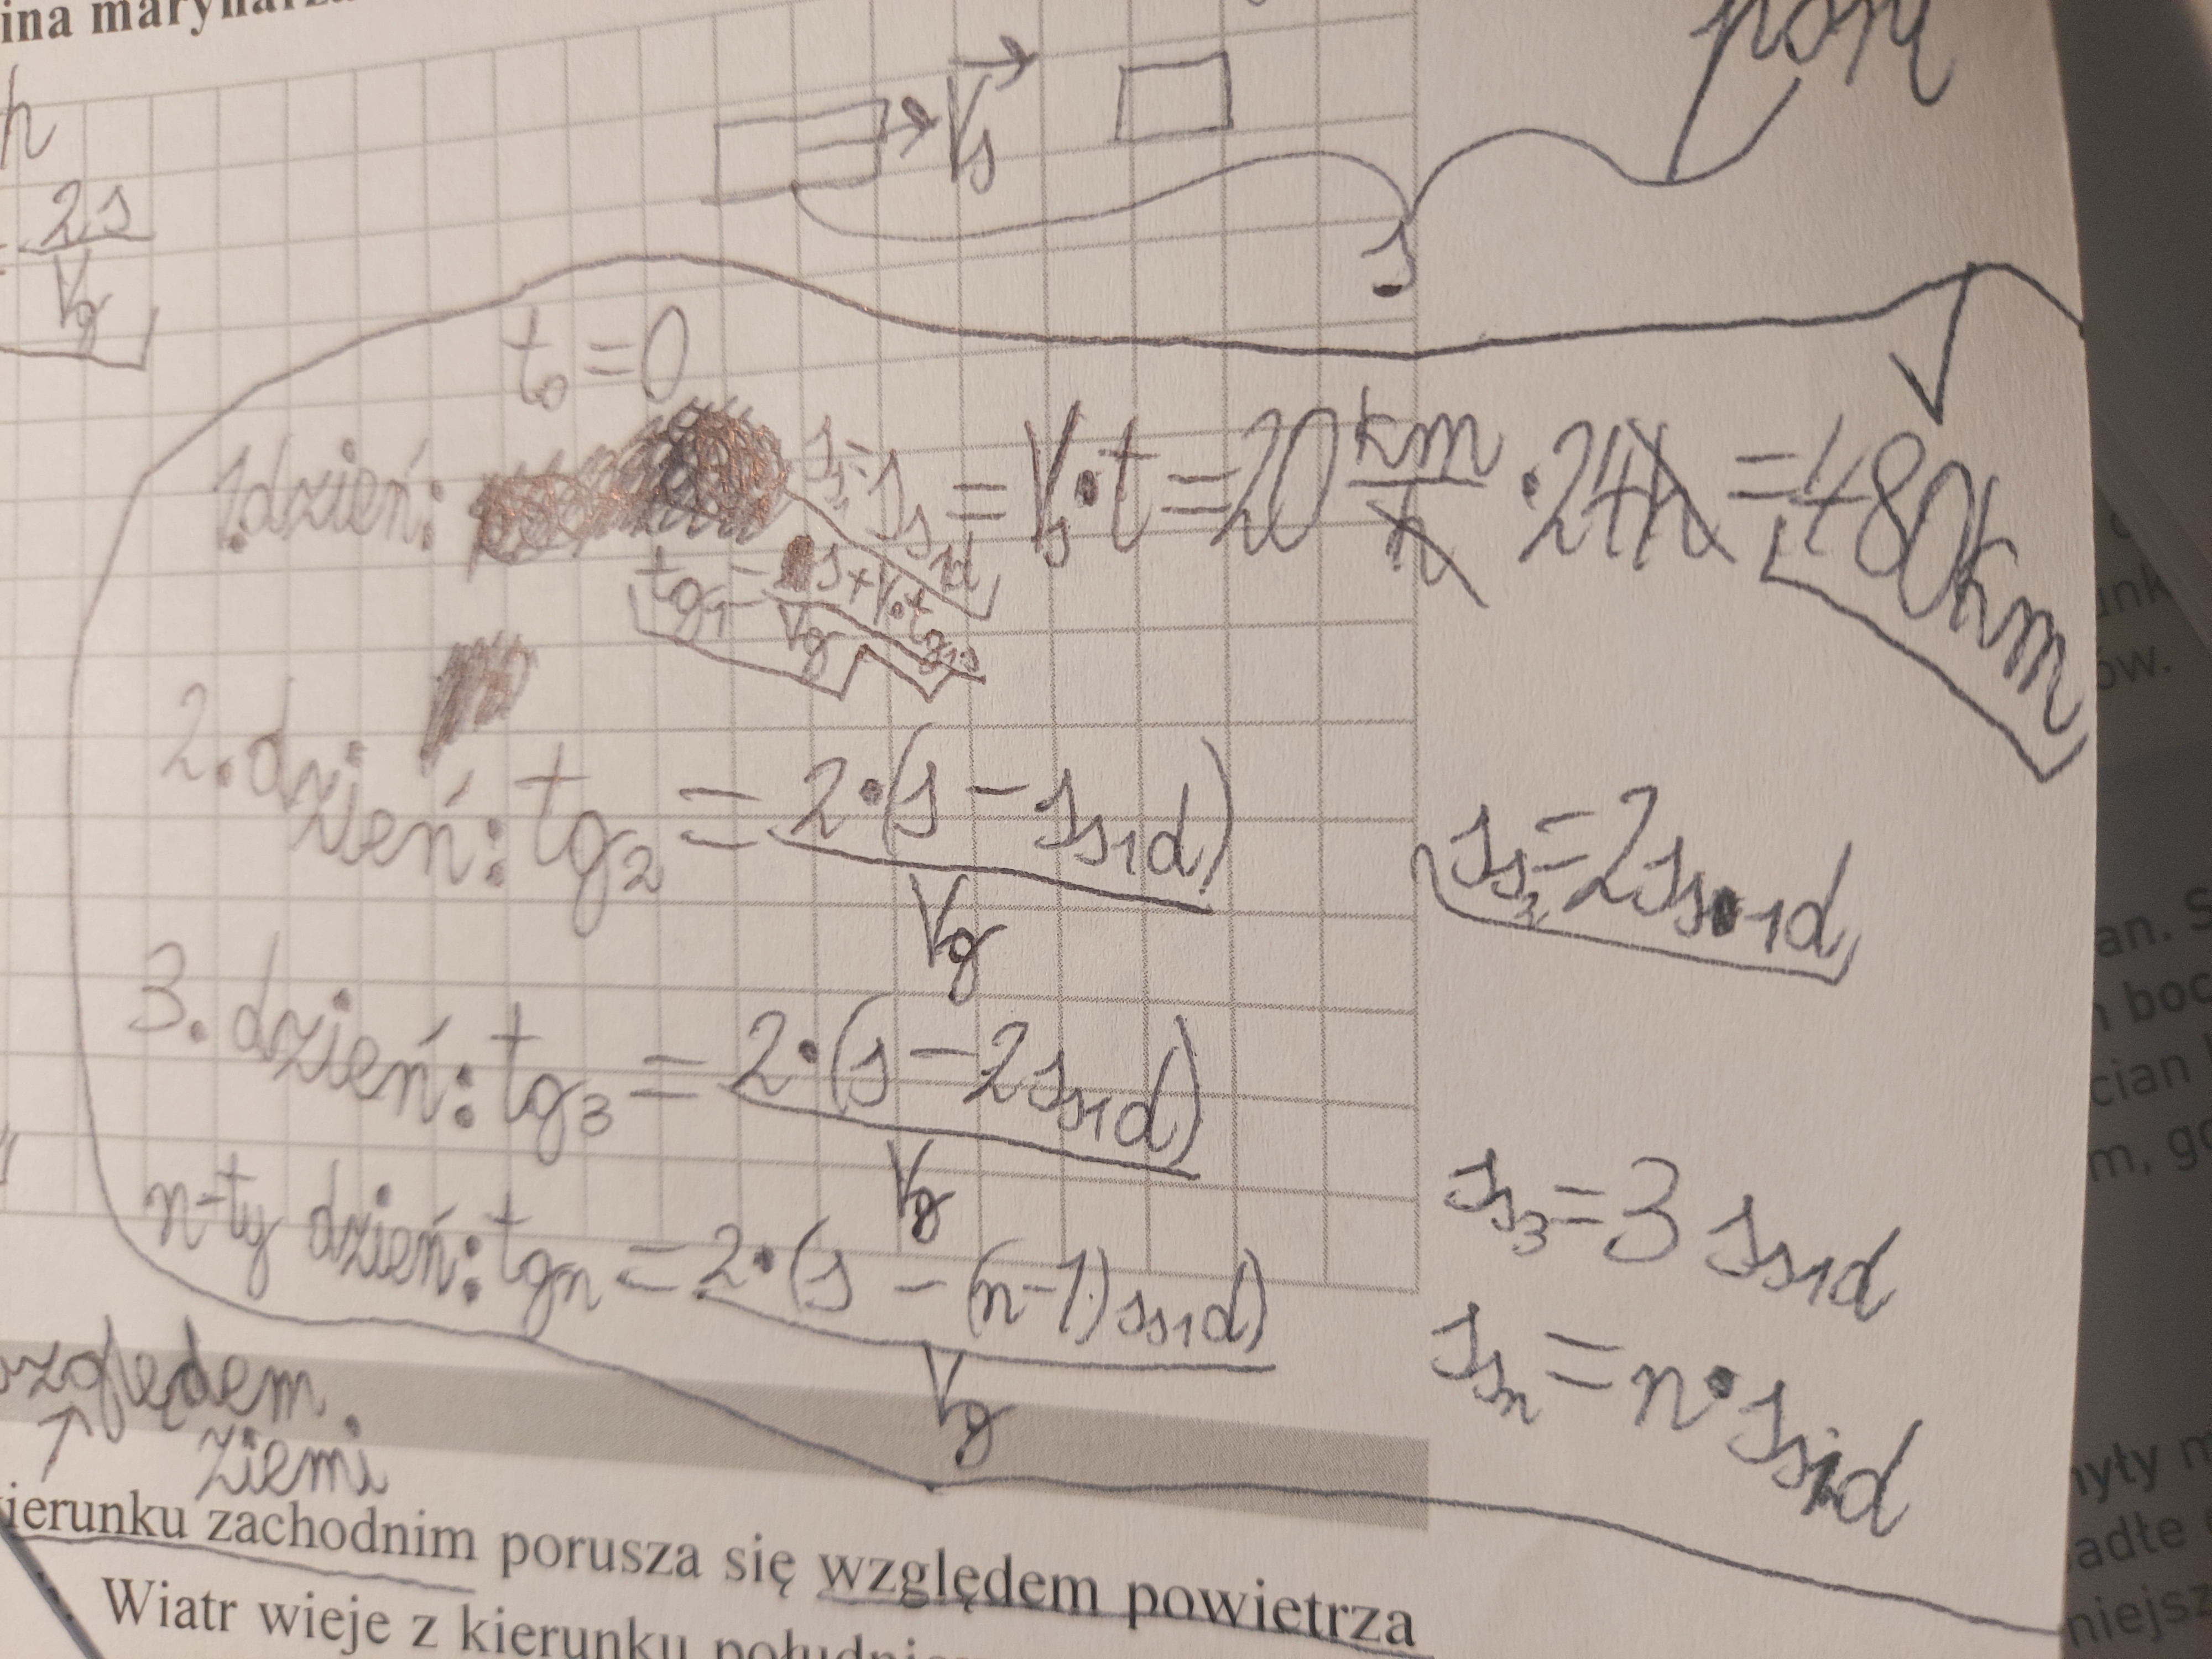 ina marynarza
h
V_s
2s
V_g
s
t_0 = 0
1.dzień: s_{s1d} = V_s·t = 20 km/h · 24h = 480km
t_{g1} = s + V_s·t_{g1}
V_g
2.dzień: t_{g2} = 2·(s - s_{s1d})
V_g
s_{s2} = 2s_{s1d}
3. dzień: t_{g3} = 2·(s - 2s_{s1d})
V_g
s_{s3} = 3 s_{s1d}
n-ty dzień: t_{gn} = 2·(s - (n-1)s_{s1d})
V_g
s_{sn} = n·s_{s1d}
względem
↑ ziemi
kierunku zachodnim porusza się względem powietrza
Wiatr wieje z kierunku
ów.
an. S
boc
cian
m, go